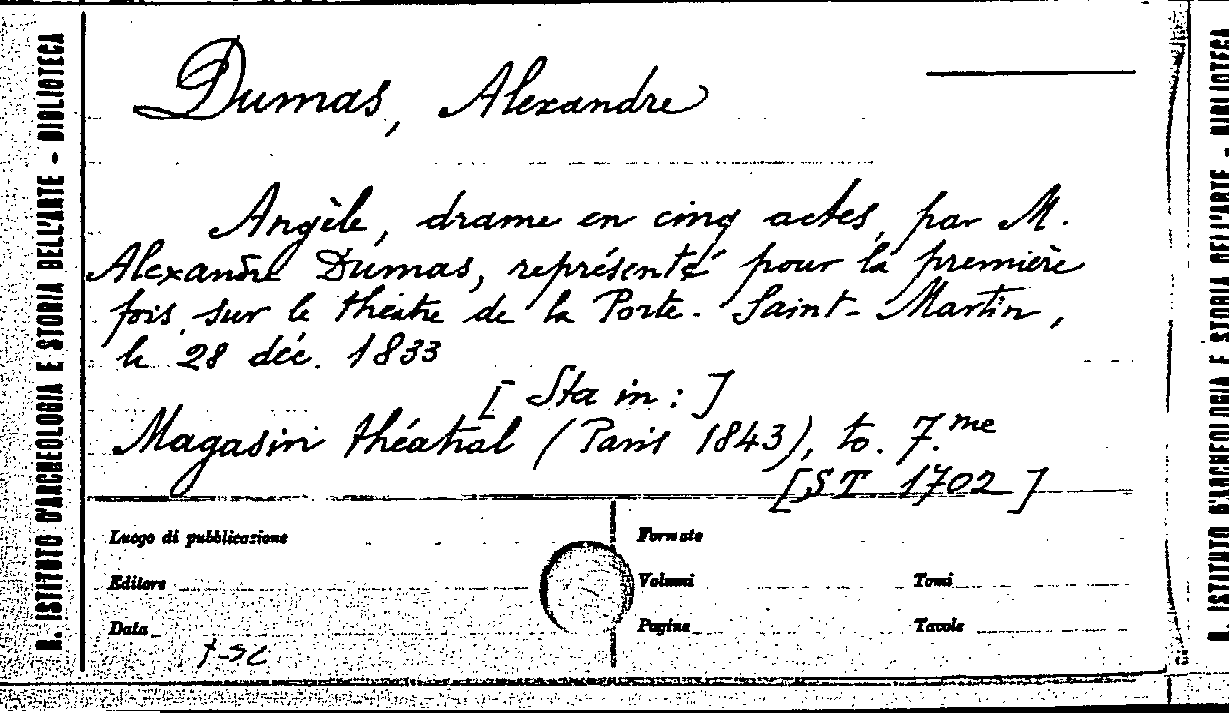 R. ISTITUTO D'ARCHEOLOGIA E STORIA DELL'ARTE - BIBLIOTECA
Dumas, Alexandre
Angèle, drame en cinq actes, par M.
Alexandre Dumas, représenté pour la première
fois, sur le théatre de la Porte-Saint-Martin,
le 28 déc. 1833
[Sta in:]
Magasin théatral (Paris 1843), to. 7.me
[ST 1702]
Luogo di pubblicazione
Formato
Editore
Volumi
Tomi
Data
Pagine
Tavole
R. ISTITUTO D'ARCHEOLOGIA E STORIA DELL'ARTE - BIBLIOTECA